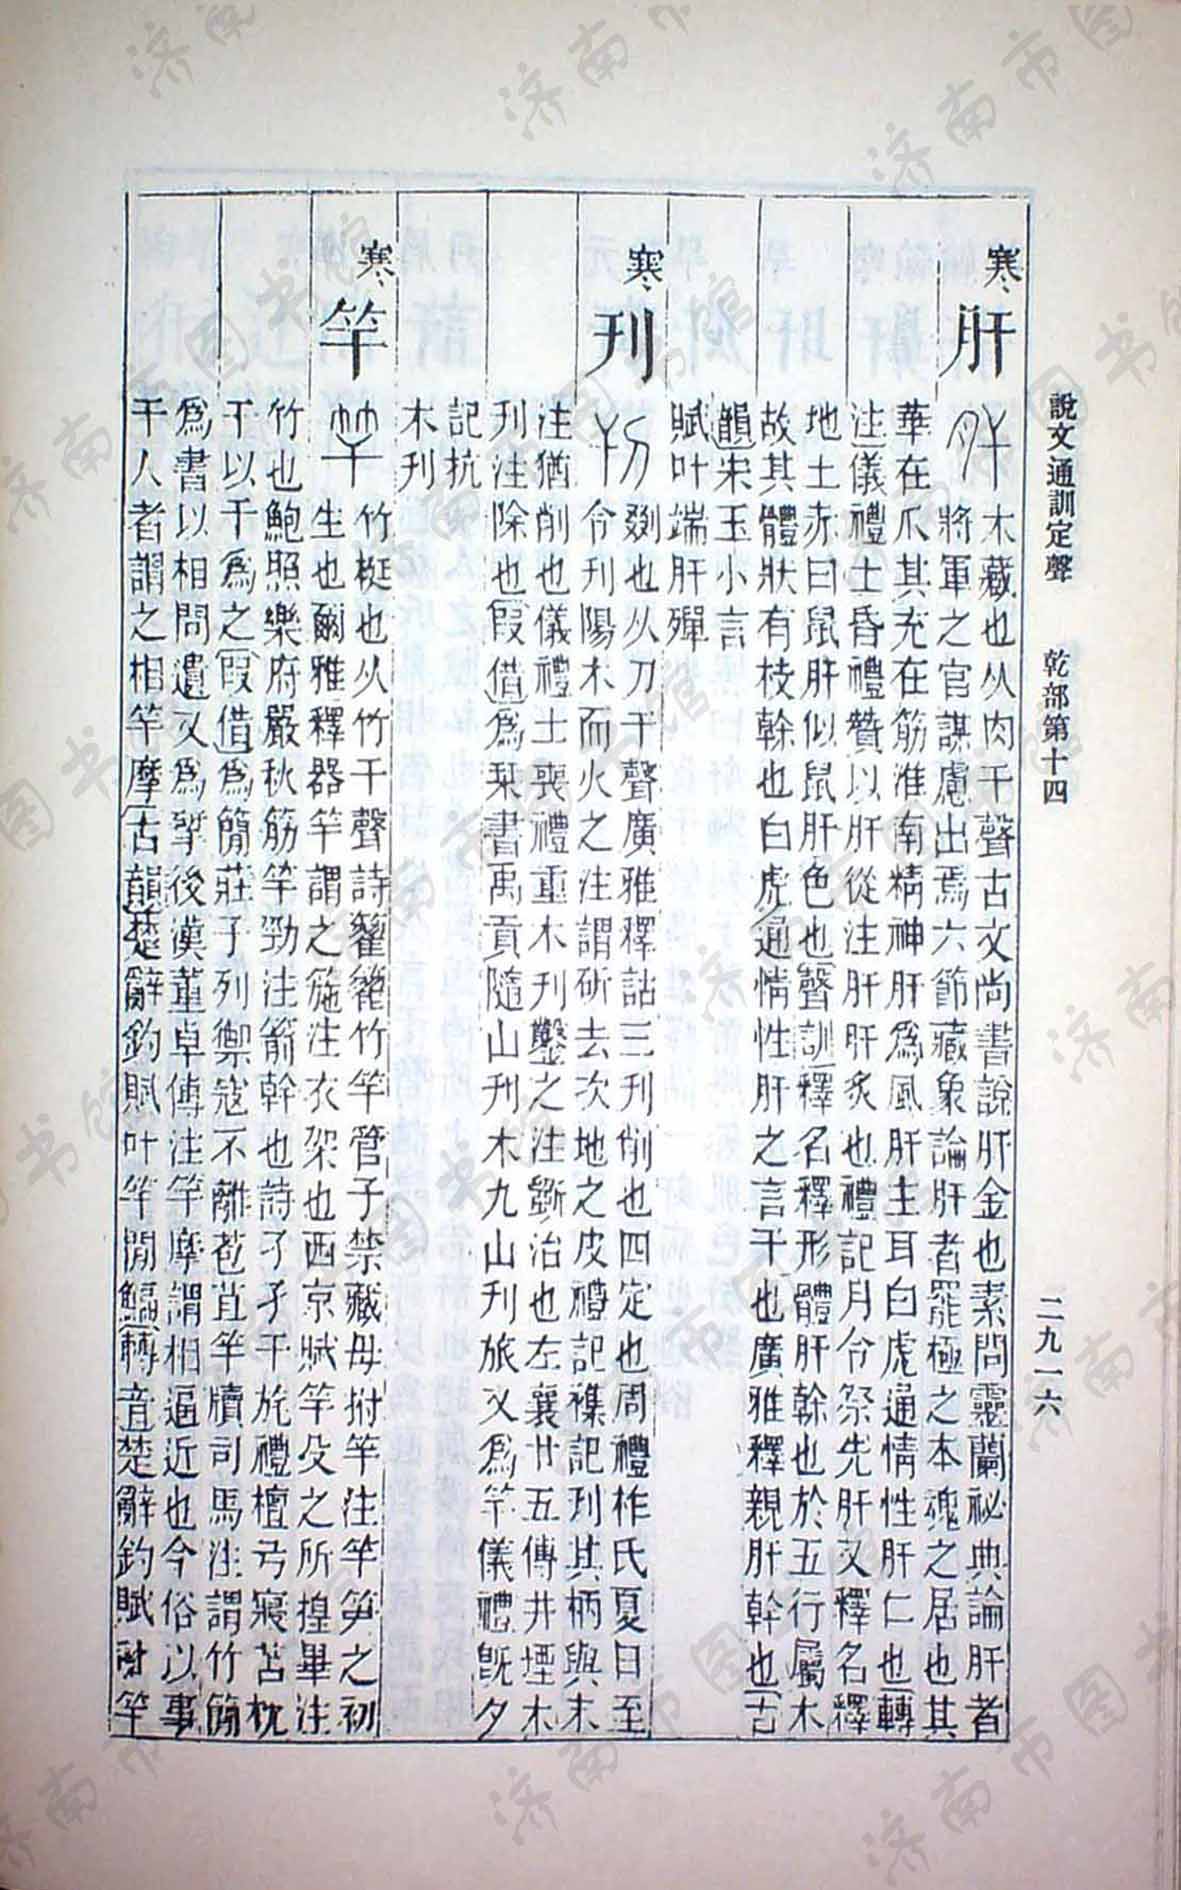 說文通訓定聲 乾部第十四 二九一六
寒 肝
木藏也从肉干聲古文尚書說肝金也素問靈蘭祕典論肝者
將軍之官謀慮出焉六節藏象論肝者罷極之本魂之居也其
華在爪其充在筋淮南精神肝為風肝主耳白虎通情性肝仁也轉
注儀禮士昏禮贊以肝從注肝肝炙也禮記月令祭先肝又釋名釋
地土赤曰鼠肝似鼠肝色也聲訓釋名釋形體肝幹也於五行屬木
故其體狀有枝幹也白虎通情性肝之言干也廣雅釋親肝幹也古
韻宋玉小言
賦叶端肝殫
寒 刊
剟也从刀干聲廣雅釋詁三刊削也四定也周禮柞氏夏日至
令刊陽木而火之注謂斫去次地之皮禮記襍記刊其柄與末
注猶削也儀禮士喪禮重木刊鑿之注斲治也左襄廿五傳井堙木
刊注除也叚借為栞書禹貢隨山刊木九山刊旅又為竿儀禮旣夕
記杭
木刊
寒 竿
竹梃也从竹干聲詩籊籊竹竿管子禁藏毋拊竿注竿筍之初
生也爾雅釋器竿謂之箷注衣架也西京賦竿殳之所揘畢注
竹也鮑照樂府嚴秋筋竿勁注箭幹也詩孑孑干旄禮檀弓寢苫枕
干以干為之叚借為簡莊子列禦寇不離苞苴竿牘司馬注謂竹簡
為書以相問遺又為挐後漢董卓傳注竿摩謂相逼近也今俗以事
干人者謂之相竿摩古韻楚辭釣賦叶竿閒鯿轉音楚辭釣賦叶竿